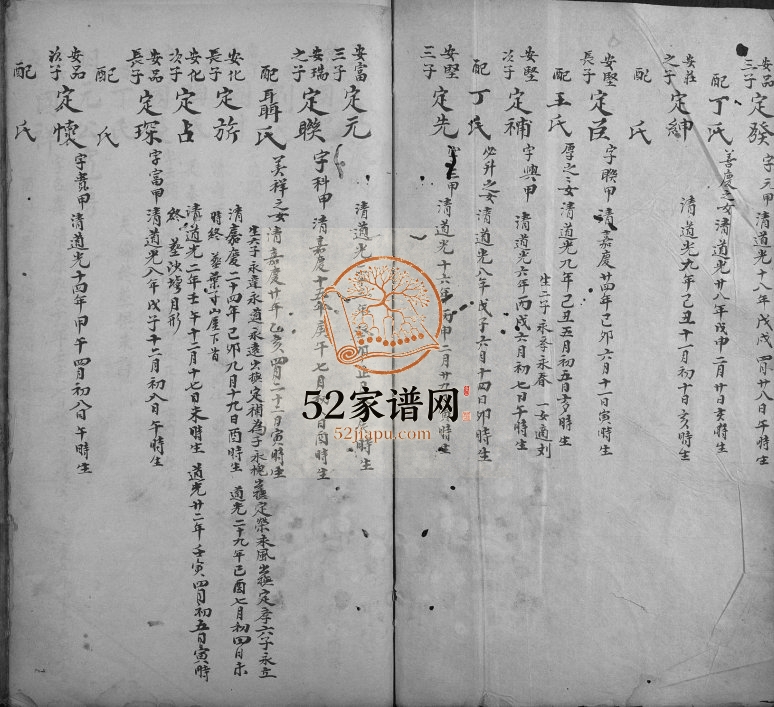 安品三子 定發 字元甲 清道光十八年戊戌四月廿八日午時生
配 丁氏 善慶之女 清道光廿八年戊申二月廿日亥時生
安莊之子 定紳 清道光九年己丑十一月初十日亥時生
配 氏
安堅長子 定臣 字聯甲 清嘉慶廿四年己卯六月十一日寅時生
配 王氏 厚之之女 清道光九年己丑五月初五日亥時生
生二子永 永春 一女適刘
安堅次子 定補 字興甲 清道光六年丙戌六月初七日午時生
配 丁氏 必升之女 清道光八年戊子六月十四日卯時生
安堅三子 定先 甲 清道光十六年 申二月廿九 時生
安富三子 定元 清道光 時生
安瑞之子 定聯 字科甲 清嘉慶十五年庚午七月 日酉時生
配 聶氏 美祥之女 清嘉慶廿年乙亥四月二十二日寅時生
生六子永達永道永遠出撫定補為子永 出撫定榮永風出撫定 六子永立
安化長子 定旅 清嘉慶二十四年己卯九月十九日酉時生 道光二十九年己酉七月初四日未
時終 葬葉寸山屋下首
安化次子 定占 清道光二年壬午十二月十七日未時生 道光廿二年壬寅四月初五日寅時
終 葬沙壇月形
安品長子 定琛 字富甲 清道光八年戊子十二月初八日午時生
配 氏
安品次子 定懷 字貴甲 清道光十四年甲午四月初八日午時生
配 氏
52家谱网
52jiapu.com